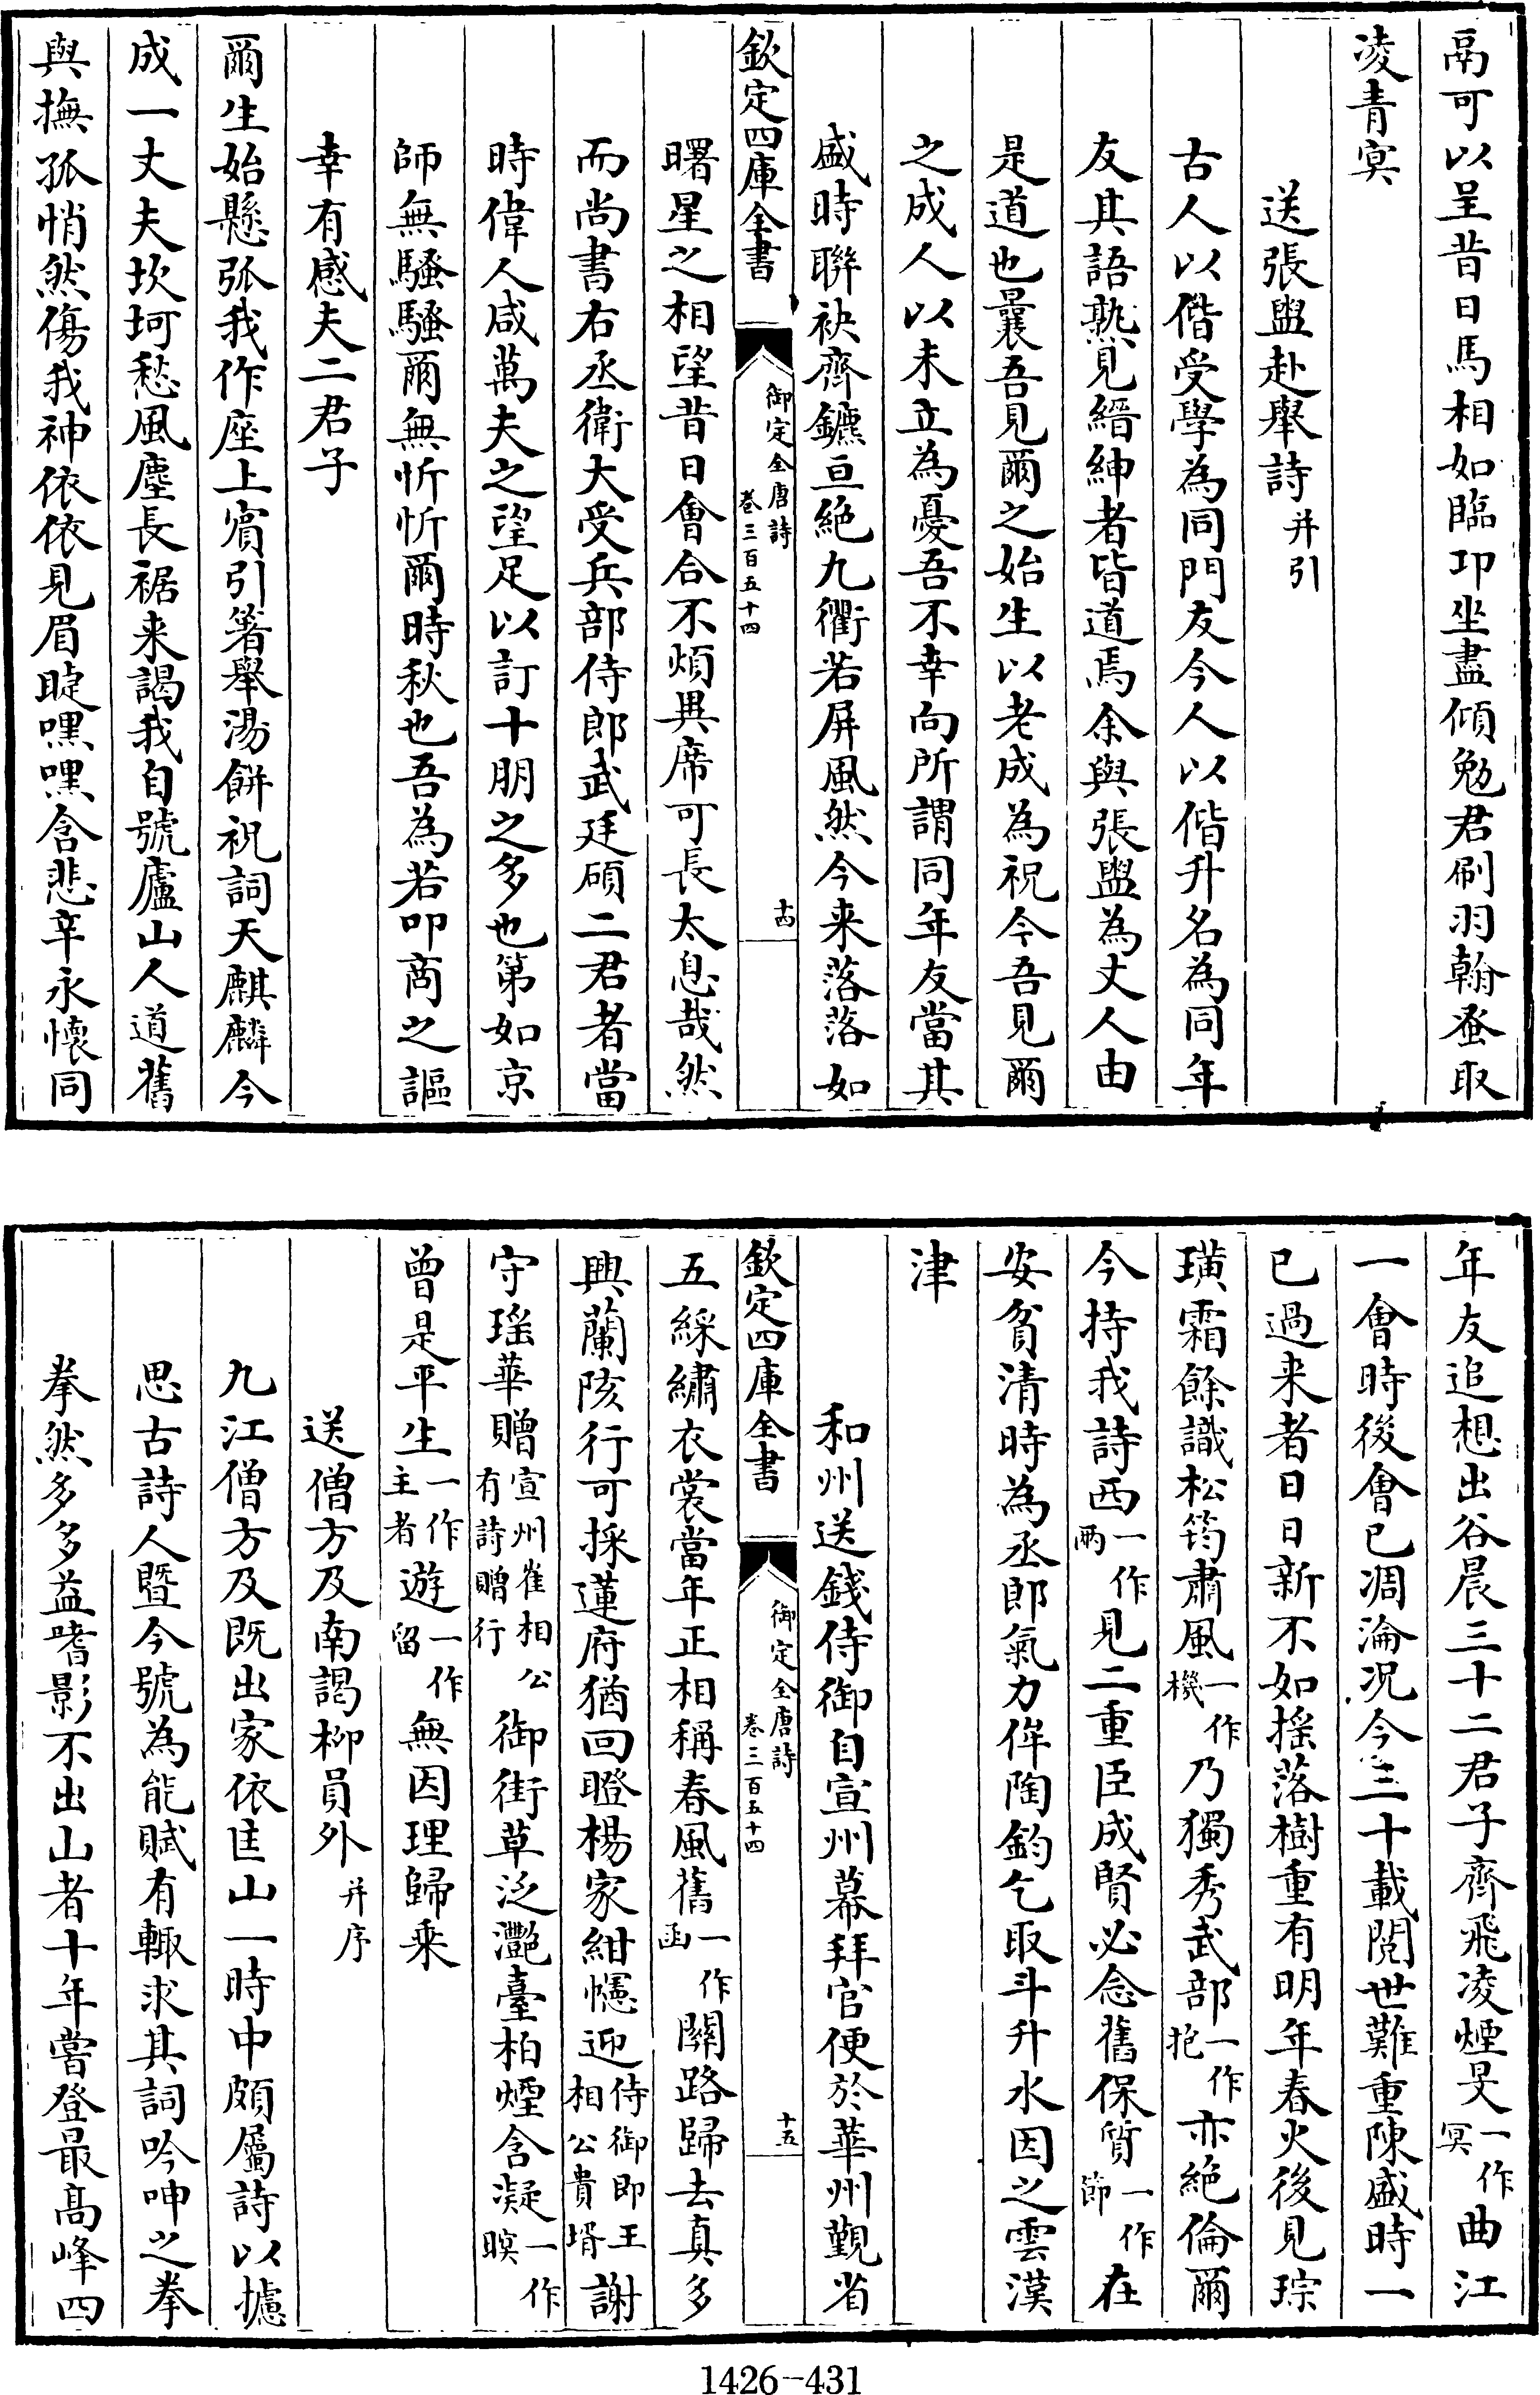 鬲可以呈昔日馬相如臨卭坐盡傾勉君刷羽翰蚤取
凌青㝠
送張盥赴舉詩并引
古人以偕受學為同門友今人以偕升名為同年
友其語熟見縉紳者皆道焉余與張盥為丈人由
是道也曩吾見爾之始生以老成為祝今吾見爾
之成人以未立為憂吾不幸向所謂同年友當其
盛時聯袂齊鑣亘絶九衢若屏風然今来落落如
欽定四庫全書
御定全唐詩
卷三百五十四
十四
曙星之相望昔日會合不煩異席可長太息哉然
而尚書右丞衛大受兵部侍郎武廷碩二君者當
時偉人咸萬夫之望足以訂十朋之多也第如京
師無騷騷爾無忻忻爾時秋也吾為若叩商之謳
幸有感夫二君子
爾生始懸弧我作座上賓引箸舉湯餅祝詞天麒麟今
成一丈夫坎坷愁風塵長裾来謁我自號廬山人道舊
與撫孤悄然傷我神依依見眉睫嘿嘿含悲辛永懷同
年友追想出谷晨三十二君子齊飛凌煙旻一作冥曲江
一會時後會已凋淪况今三十載閲世難重陳盛時一
已過来者日日新不如揺落樹重有明年春火後見琮
璜霜餘識松筠肅風一作機乃獨秀武部一作抱亦絶倫爾
今持我詩西一作兩見二重臣成賢必念舊保質一作節在
安貧清時為丞郎氣力侔陶鈞乞取斗升水因之雲漢
津
和州送錢侍御自宣州幕拜官便於華州覲省
欽定四庫全書
御定全唐詩
卷三百五十四
十五
五綵繡衣裳當年正相稱春風舊一作函關路歸去真多
興蘭陔行可採蓮府猶回瞪楊家紺幰迎侍御即王相公貴壻謝
守瑶華贈宣州崔相公有詩贈行御街草泛灔臺柏煙含凝一作暝
曾是平生一作主者遊一作留無因理歸乘
送僧方及南謁柳員外并序
九江僧方及既出家依匡山一時中頗屬詩以攄
思古詩人暨今號為能賦有輙求其詞吟呻之拳
拳然多多益嗜影不出山者十年嘗登最高峰四
1426-431